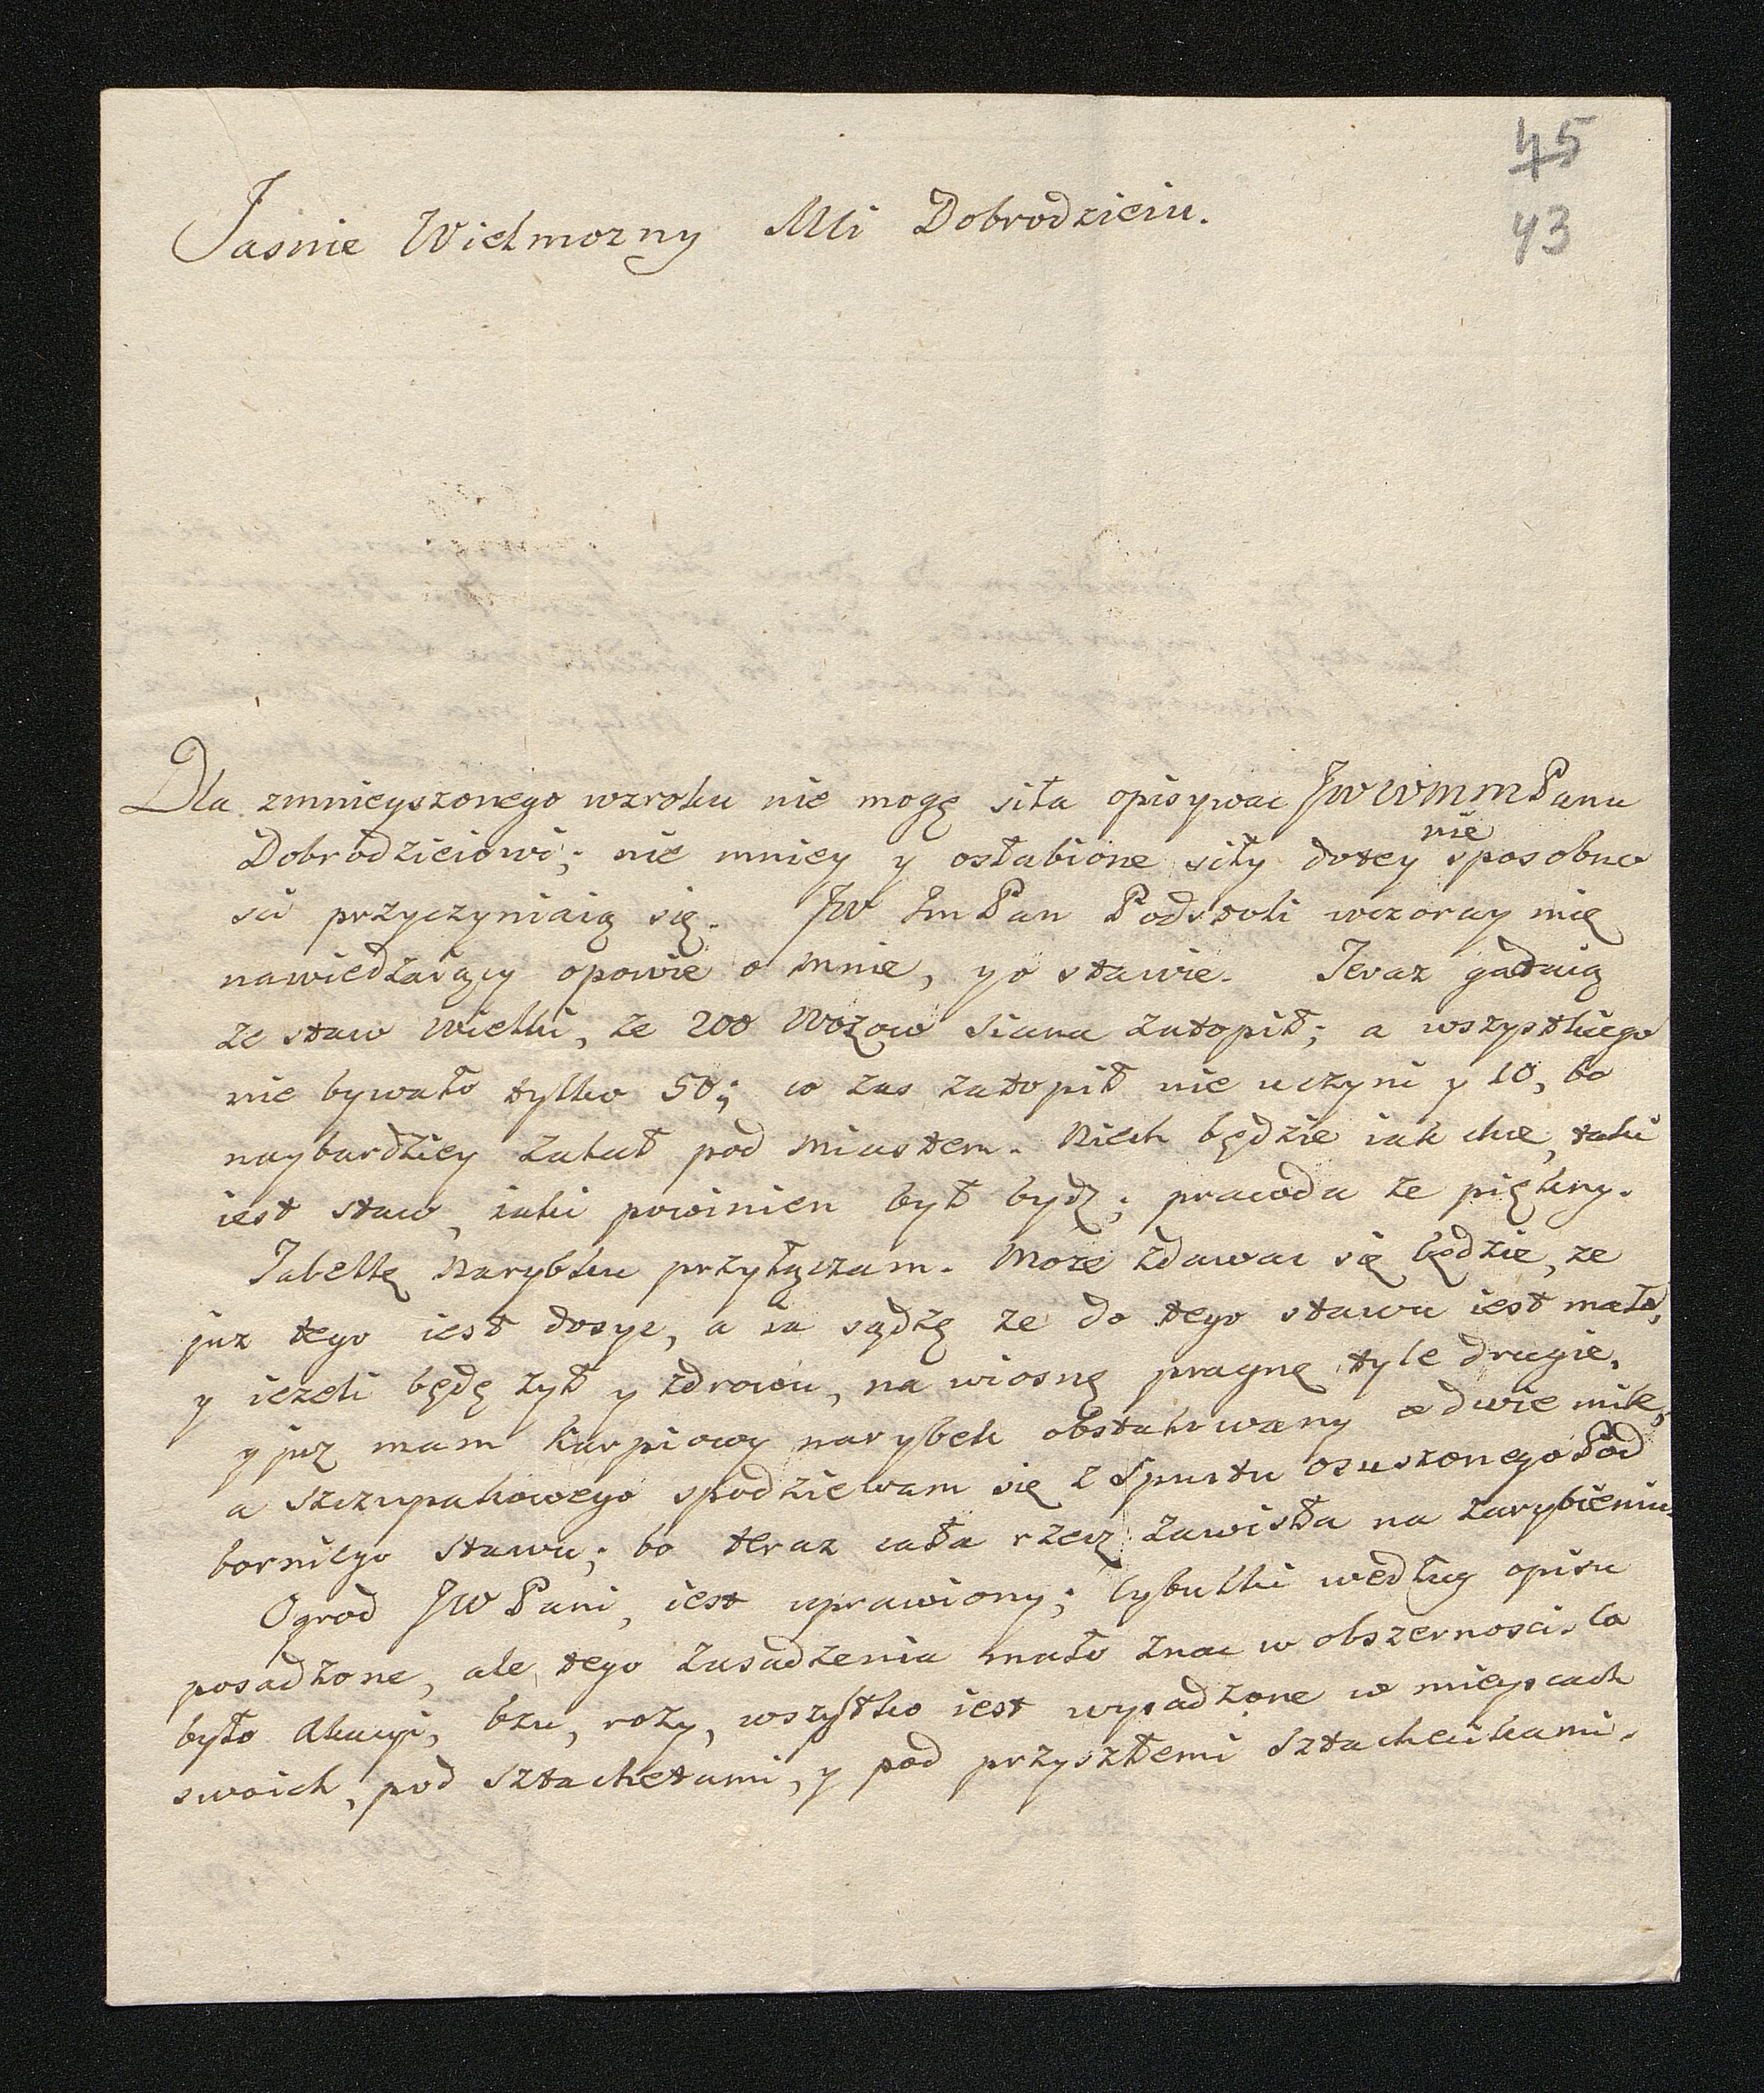 45
43
Jasnie Wielmozny Mći Dobrodzieiu.
Dla zmnieyszonego wzroku nie mogę siła opisywac JWWMMPanu
Dobrodzieiowi; nie mniey y osłabione siły dosey nie sposobno
sci przyczyniaią się. JW ImPan Podstoli wczoray mię
nawiedzaiący opowie o mnie, y o stawie. Teraz gadaią
ze staw wielki, ze 200 Wozow siana zatopił; a wszystkiego
nie bywało tylko 50; co zas zatopił nie uczyni y 10, bo
naybardziey zalał pod miastem. Niech będzie iak chce, taki
iest staw, iaki powinien był bydz; prawda ze piękny.
Tabellę Narybku przyłączam. Moze zdawac się będzie, ze
juz tego iest dosyc, a ia sądzę ze do tego stawu iest mało,
y iezeli będę zył y zdrowu, na wiosnę pragnę tyle drugie,
y juz mam Karpiowy narybek obstalowany o dwie mile,
a szczupakowego spodziewam się z Spustu osuszonego Pod
bornego stawu; bo teraz cała rzecz zawisła na zarybieniu.
Ogrod JWPani, iest uprawiony; Cybulki według opisu
posadzone, ale tego zasadzenia mało znac w obszernosci. Co
było Akacyi, bzu, rozy, wszystko iest wysadzone w mieyscach
swoich, pod sztachetami, y pod przyszłemi sztacheikami.